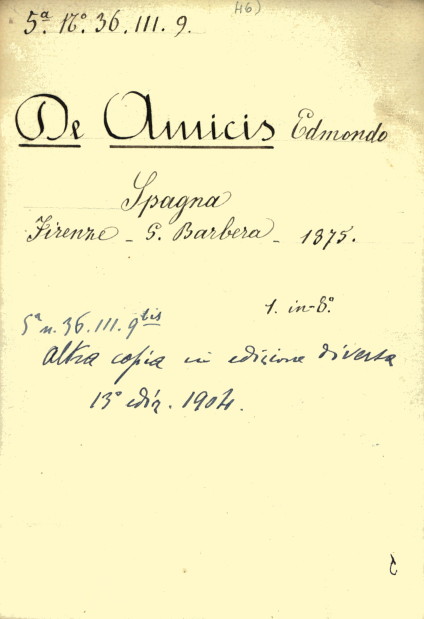 46)
5ª N.° 36. III. 9.
De Amicis Edmondo
Spagna
Firenze - G. Barbera - 1875.
1. in-8.°
5ª n. 36. III. 9 bis
altra copia in edizione diversa
13ª ediz. 1904.